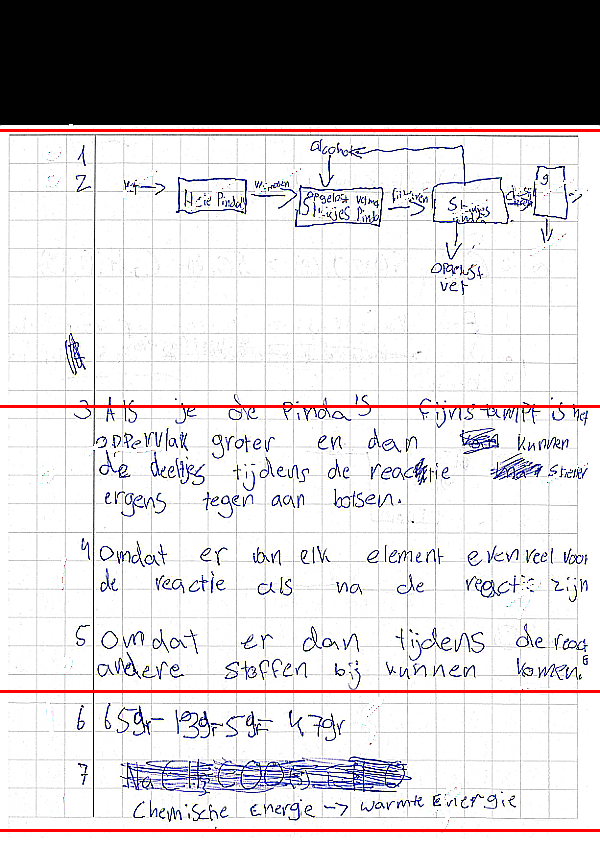 1
2
alcohol
Hele Pinda
Opgelost vet me
Stukjes Pinda
Stukjes
pinda
g
Opgelost
vet
3 Als je de Pinda's fijnstampt is het
oppervlak groter en dan kunnen
de deeltjes tijdens de reactie
ergens tegen aan botsen.
4 Omdat er van elk element evenveel voor
de reactie als na de reactie zijn
5 Omdat er dan tijdens de react
andere stoffen bij kunnen komen.
6 65gr-13gr-5gr= 47gr
7
Chemische Energie -> warmte Energie